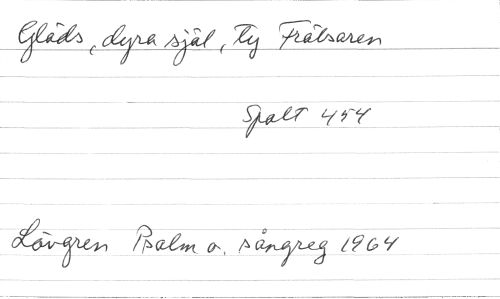 Gläds, dyra själ, ty Frälsaren
Spalt 454
Lövgren Psalm o. sångreg 1964